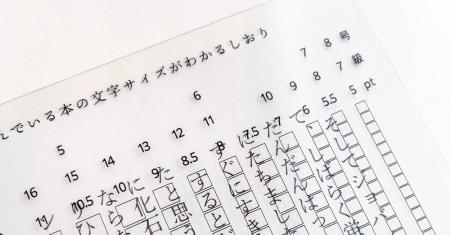 んでいる本の文字サイズがわかるしおり
5 6 7 8 号
16 15 14 13 12 11 10 9 8 7 級
11 10.5 10 9 8.5 8 7.5 7 6 5.5 5 pt
そしてジョバ
で、しばらく蛍
だんだんはっ
にたちまし
すぐにすき
するとど
たと思う
に化石
なら
ひ